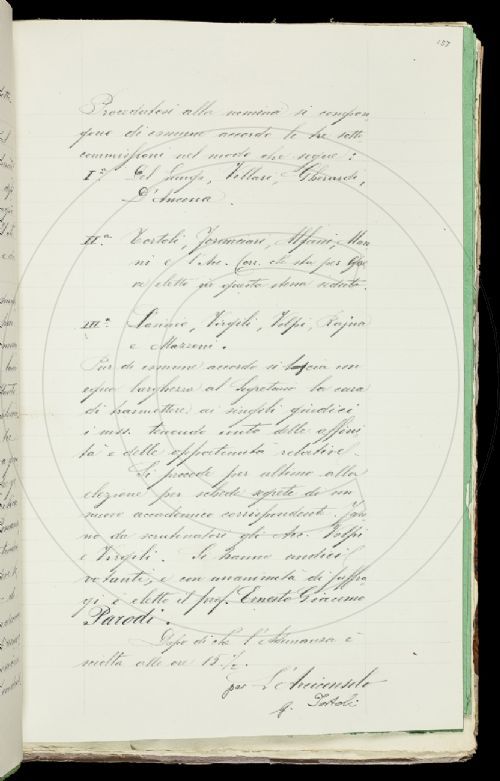 157
Procedutosi alla nomina si compon
gono di comune accordo le tre sotto
commissioni nel modo che segue:
Iª Del Lungo, Villari, Gherardi,
D'Ancona.
IIª Tortoli, Alfani, Maz
ni e l'Ac. Corr. che sta per esse
re eletto in questa stessa seduta.
IIIª Vannio, Virgili, Volpi, Rajna
e Mazzoni.
Pur di comune accordo si lascia con
equa larghezza al Segretario la cura
di trasmettere ai singoli giudici
i mss. tenendo conto delle affini
tà e delle opportunità relative.
Si procede per ultimo alla
elezione per schede segrete di un
nuovo accademico corrispondente. Fan
no da scrutinatori gli Acc. Volpi
e Virgili. Si hanno undici
votanti, e con unanimità di suffra
gi è eletto il prof. Ernesto Giacomo
Parodi.
Dopo di che l'Adunanza è
sciolta alle ore 15 ½.
per L'Arciconsolo
G. Tortoli